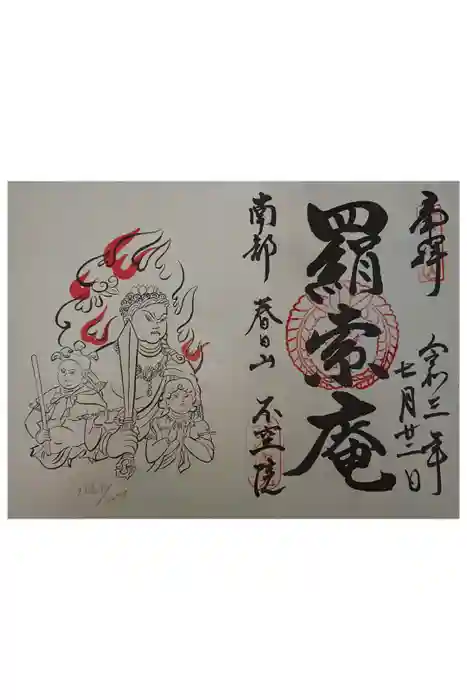 奉拝
令和三年
七月廿二日
羂索庵
南都 春日山 不空院